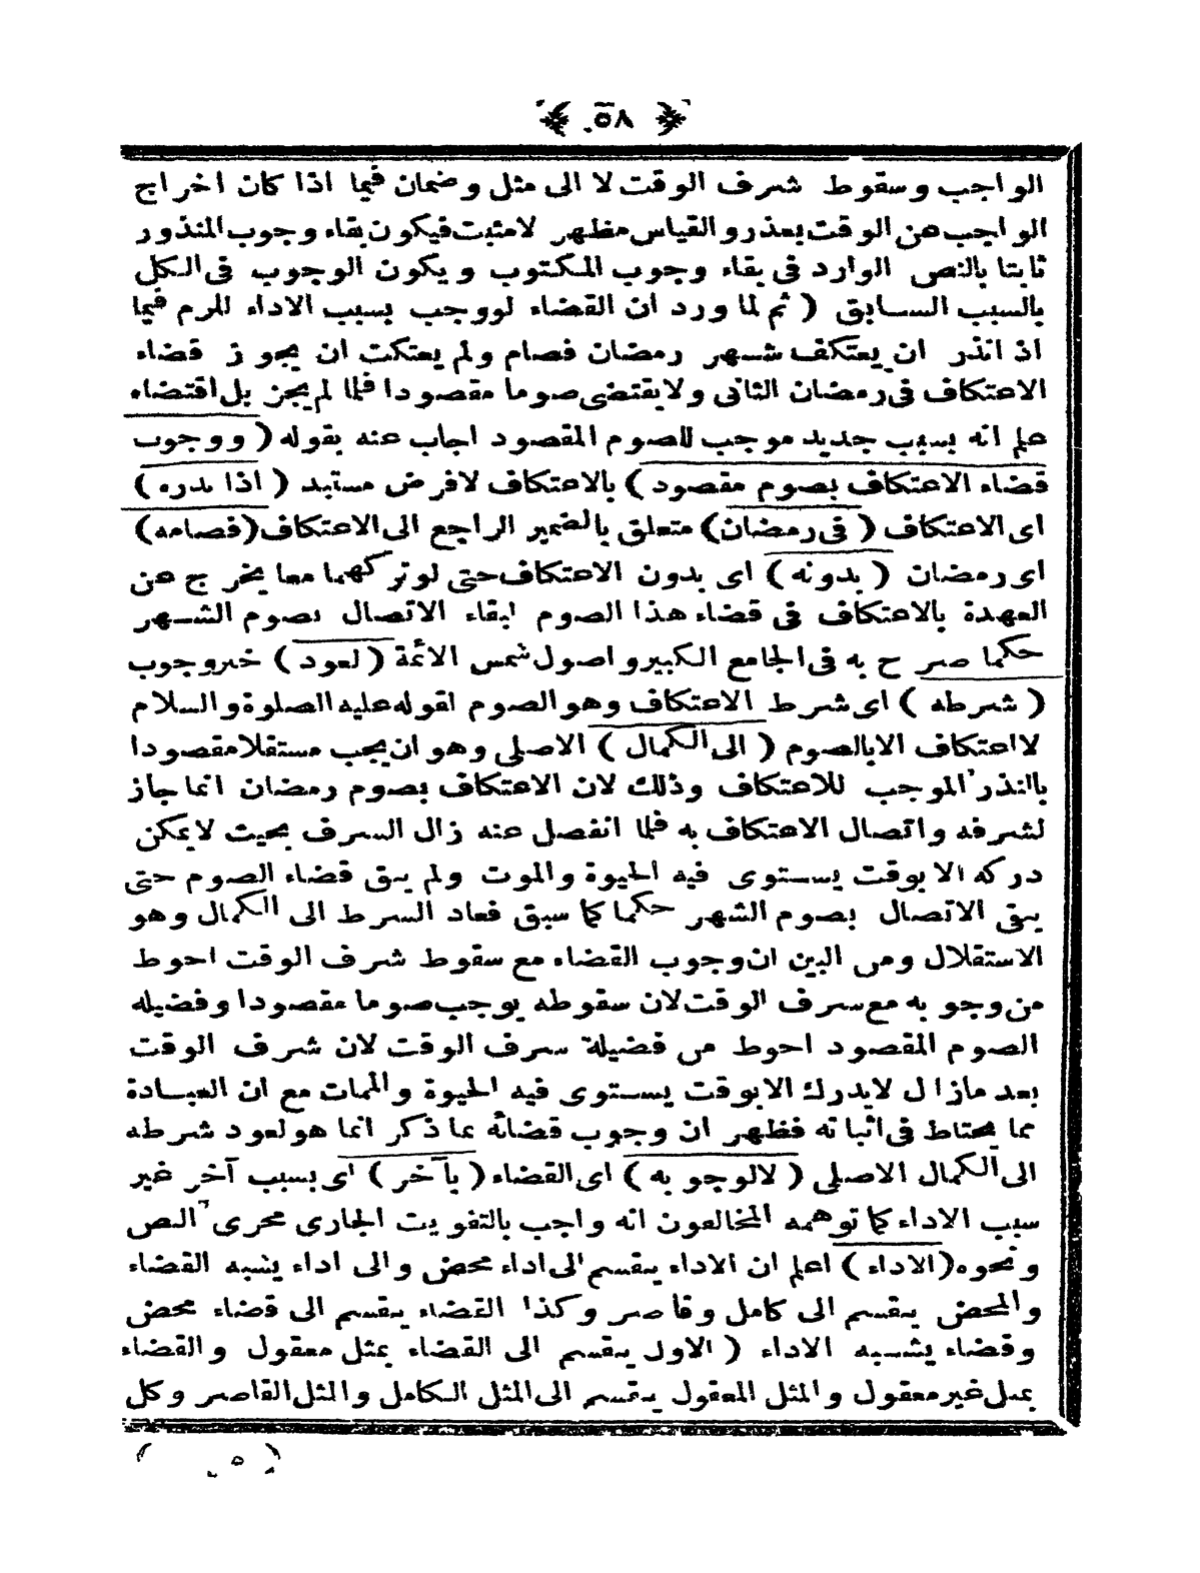 ٥٨
الواجب وسقوط شرف الوقت لا الى مثل وضمان فيما اذا كان اخراج
الواجب عن الوقت بعذر والقياس مظهر لامثبت فيكون بقاء وجوب المنذور
ثابتا بالنص الوارد فى بقاء وجوب المكتوب ويكون الوجوب فى الكل
بالسبب السابق ( ثم لما ورد ان القضاء لووجب بسبب الاداء للزم فيما
اذ انذر ان يعتكف شهر رمضان فصام ولم يعتكت ان يجوز قضاء
الاعتكاف فى رمضان الثانى ولايقتضى صوما مقصودا فلما لم يجز بل اقتضاه
علم انه بسبب جديد موجب للصوم المقصود اجاب عنه بقوله ( ووجوب
قضاء الاعتكاف بصوم مقصود ) بالاعتكاف لافرض مستبد ( اذا نذره )
اى الاعتكاف ( فى رمضان) متعلق بالضمير الراجع الى الاعتكاف (فصامه)
اى رمضان ( بدونه ) اى بدون الاعتكاف حتى لو تركهما معا يخرج عن
العهدة بالاعتكاف فى قضاء هذا الصوم لبقاء الاتصال بصوم الشهر
حكما صرح به فى الجامع الكبير واصول شمس الائمة ( لعود ) خبر وجوب
( شرطه ) اى شرط الاعتكاف وهو الصوم لقوله عليه الصلوة والسلام
لا اعتكاف الا بالصوم ( الى الكمال ) الاصلى وهو ان يجب مستقلا مقصودا
بالنذر الموجب للاعتكاف وذلك لان الاعتكاف بصوم رمضان انما جاز
لشرفه واتصال الاعتكاف به فلما انفصل عنه زال الشرف بحيث لا يمكن
دركه الا بوقت يستوى فيه الحيوة والموت ولم يبق قضاء الصوم حتى
يبقى الاتصال بصوم الشهر حكما كما سبق فعاد الشرط الى الكمال وهو
الاستقلال ومن البين ان وجوب القضاء مع سقوط شرف الوقت احوط
من وجوبه مع شرف الوقت لان سقوطه يوجب صوما مقصودا وفضيله
الصوم المقصود احوط من فضيلة شرف الوقت لان شرف الوقت
بعد ما زال لا يدرك الا بوقت يستوى فيه الحيوة والممات مع ان العبادة
مما يحتاط فى اثباته فظهر ان وجوب قضائه بما ذكر انما هو لعود شرطه
الى الكمال الاصلى ( لالوجوبه ) اى القضاء ( بآخر ) اى بسبب آخر غير
سبب الاداء كما توهمه المخالفون انه واجب بالتفويت الجارى مجرى النص
ونحوه (الاداء ) اعلم ان الاداء ينقسم الى اداء محض والى اداء يشبه القضاء
والمحض ينقسم الى كامل وقاصر وكذا القضاء ينقسم الى قضاء محض
وقضاء يشبه الاداء ( الاول ينقسم الى القضاء بمثل معقول والقضاء
بمثل غير معقول والمثل المعقول ينقسم الى المثل الكامل والمثل القاصر وكل
( ٥ )